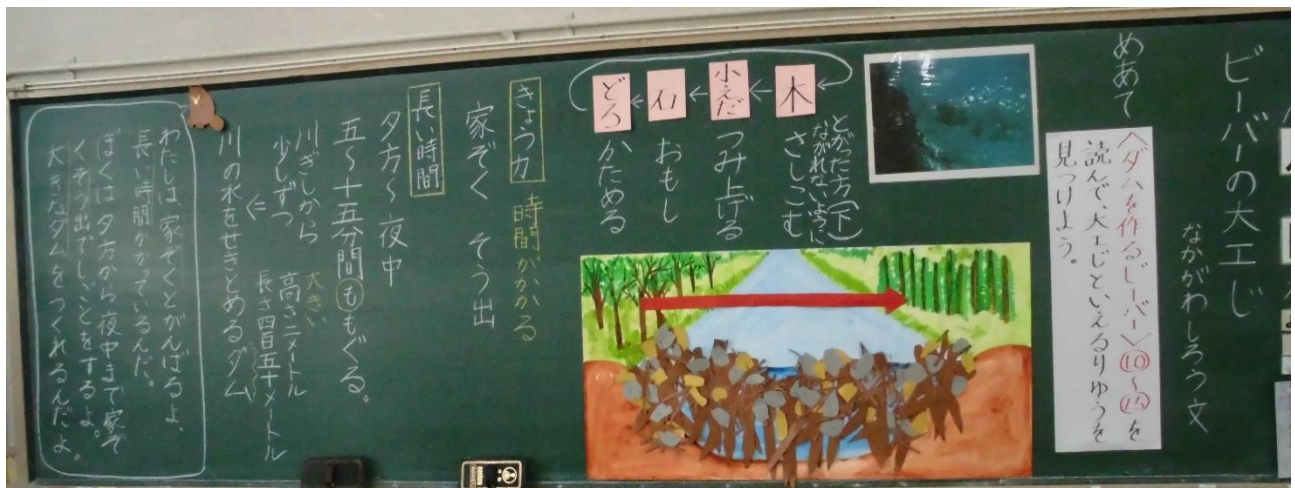 ビーバーの大工じ
なかがわしろう文
めあて
〈ダムを作るビーバー〉⑩〜⑮を
読んで、大工じといえるりゆうを
見つけよう。
木
さしこむ
とがった方(下)
ながれないように
小えだ
つみ上げる
石
おもし
どろ
かためる
きょう力
時間がかかる
家ぞく そう出
長い時間
夕方〜夜中
五〜十五分間ももぐる。
川ぎしから
少しずつ
大きい
高さ二メートル
長さ四百五十メートル
川の水をせきとめるダム
わたしは家ぞくとがんばるよ、
長い時間かかっているんだ。
ぼくは夕方から夜中まで家ぞ
くそう出でしごとをするよ。
大きなダムをつくれるんだよ。